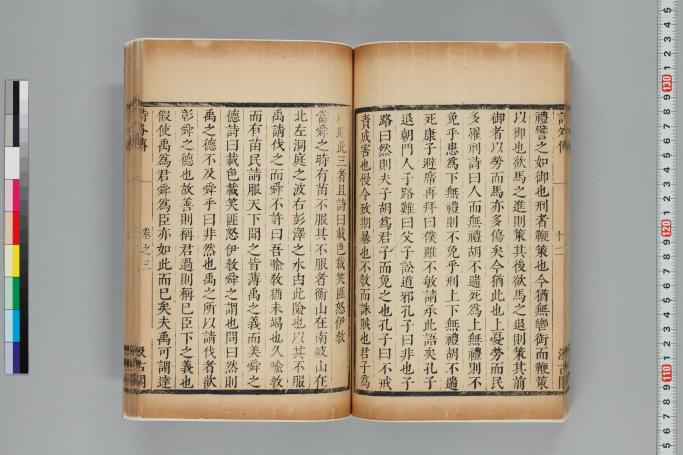 詩外傳
十二
禮譬之如御也刑者鞭策也今猶無轡銜而鞭策
以御也欲馬之進則策其後欲馬之退則策其前
御者以勞而馬亦多傷矣今猶此也上憂勞而民
多罹刑詩曰人而無禮胡不遄死爲上無禮則不
免乎患爲下無禮則不免乎刑上下無禮胡不遄
死康子避席再拜曰僕雖不敏請承此語矣孔子
退朝門人子路難曰父子訟道邪孔子曰非也子
路曰然則夫子胡爲君子而免之也孔子曰不戒
責成害也慢令致期暴也不敎而誅賊也君子爲
政避此三者且詩曰載色載笑匪怒伊敎
當舜之時有苗不服其不服者衡山在南岐山在
北左洞庭之波右彭澤之水由此險也以其不服
禹請伐之而舜不許曰吾喻敎猶未竭也久喻敎
而有苗民請服天下聞之皆薄禹之義而美舜之
德詩曰載色載笑匪怒伊敎舜之謂也問曰然則
禹之德不及舜乎曰非然也禹之所以請伐者欲
彰舜之德也故善則稱君過則稱已臣下之義也
假使禹爲君舜爲臣亦如此而已矣夫禹可謂達
詩外傳
卷之三
汲古閣